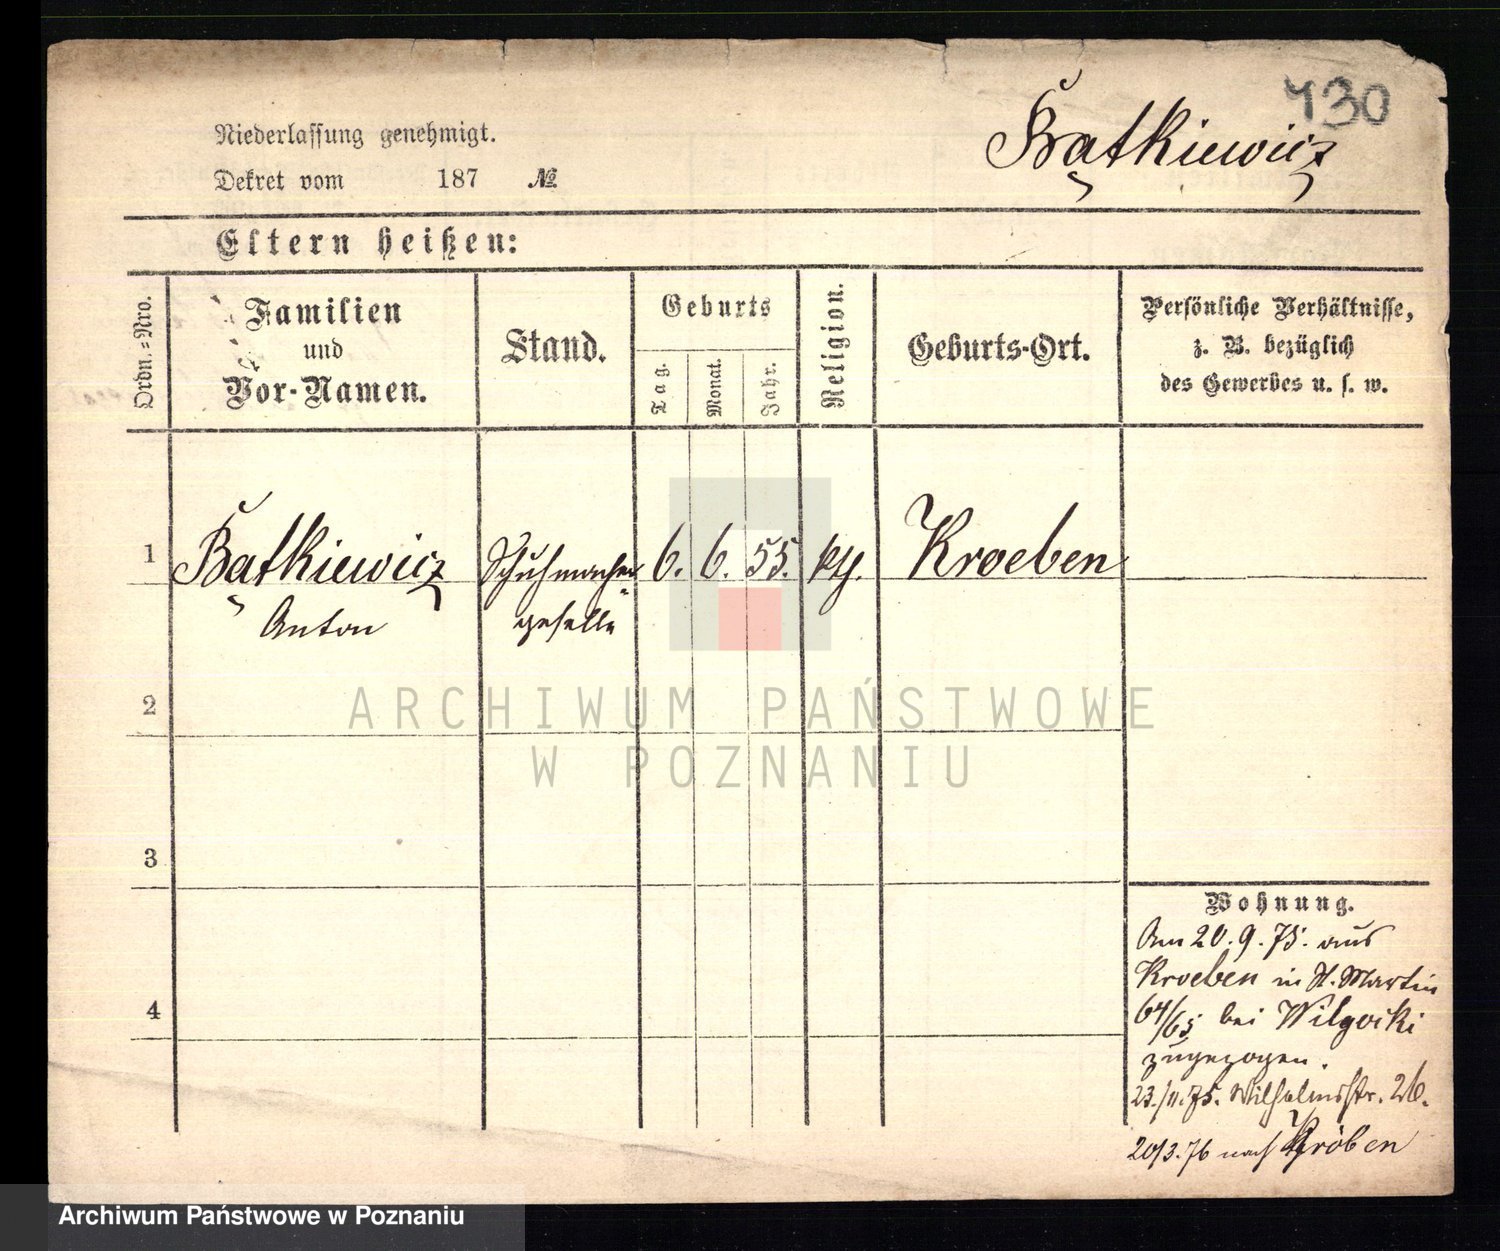 730
Bątkiewicz
Niederlassung genehmigt.
Dekret vom 187 №
Eltern heißen:
Ordn.=Nro.
Familien
und
Vor-Namen.
Stand.
Geburts
Tag.
Monat.
Jahr.
Religion.
Geburts-Ort.
Persönliche Verhältnisse,
z. B. bezüglich
des Gewerbes u. s. w.
1 Bątkiewicz Schuhmacher 6. 6. 55. kth. Kroeben
Anton geselle
2
3
4
Wohnung.
Am 20. 9. 75. aus
Kroeben in St. Martin
64/65 bei Wilgocki
zugezogen.
23./11.75. Wilhelmsstr. 26.
20/3.76 nach Kröben
ARCHIWUM PAŃSTWOWE
W POZNANIU
Archiwum Państwowe w Poznaniu